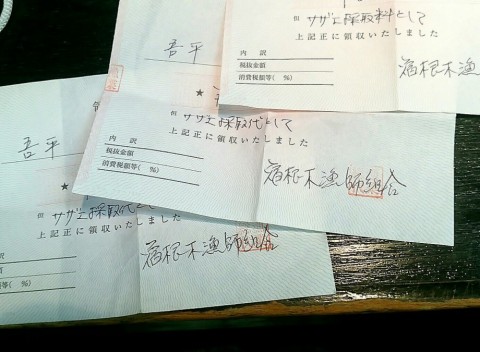 但 サザエ採取料として
上記正に領収いたしました
内訳
税抜金額
消費税額等( %)
宿根木漁
吾平
★
但 サザエ採取代として
上記正に領収いたしました
内訳
税抜金額
消費税額等( %)
宿根木漁師組合
領
吾平
★
但 サザエ採取代として
上記正に領収いたしました
訳
金額
額等( %)
宿根木漁師組合